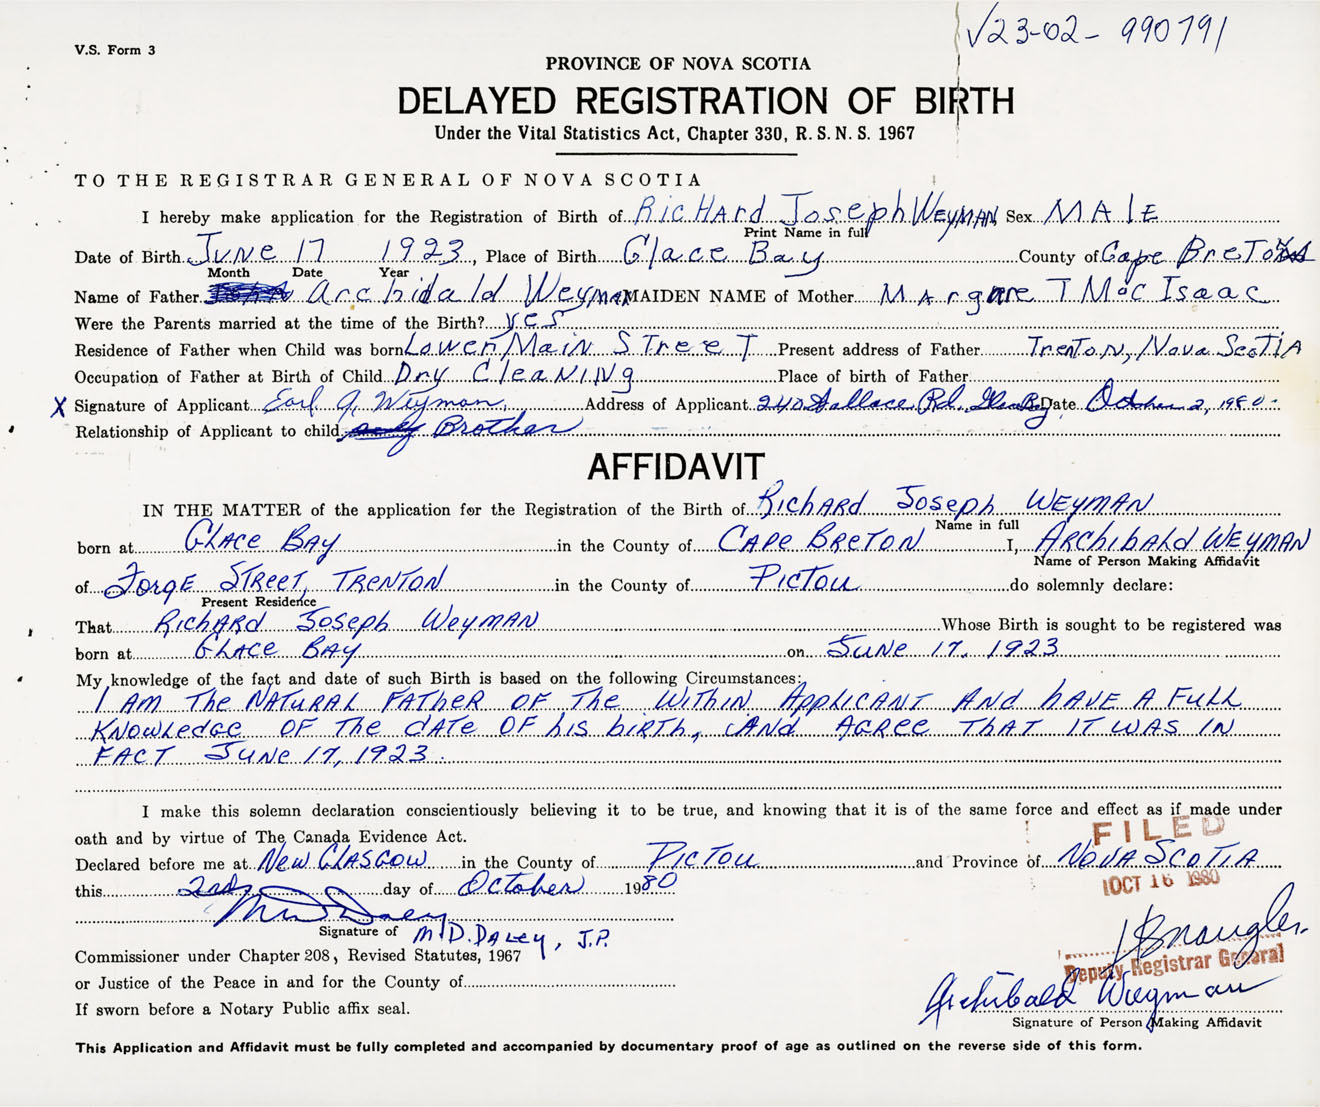 √23-02-990791
V.S. Form 3
PROVINCE OF NOVA SCOTIA
DELAYED REGISTRATION OF BIRTH
Under the Vital Statistics Act, Chapter 330, R.S.N.S. 1967
TO THE REGISTRAR GENERAL OF NOVA SCOTIA
I hereby make application for the Registration of Birth of RicHArd Joseph WEYMAN Sex MAlE
Print Name in full
Date of Birth June 17 1923, Place of Birth Glace Bay County of Cape Breton
Month Date Year
Name of Father Archibald Weyman MAIDEN NAME of Mother Margaret McIsaac
Were the Parents married at the time of the Birth? yes
Residence of Father when Child was born Lower Main Street Present address of Father Trenton, Nova Scotia
Occupation of Father at Birth of Child Dry Cleaning Place of birth of Father
X Signature of Applicant Earl A. Weyman Address of Applicant 240 Wallace Rd. Glace Bay Date October 2, 1980.
Relationship of Applicant to child Brother
AFFIDAVIT
IN THE MATTER of the application for the Registration of the Birth of Richard Joseph WEYMAN
Name in full
born at Glace Bay in the County of Cape Breton I, Archibald WEYMAN
Name of Person Making Affidavit
of Forge Street, Trenton in the County of Pictou do solemnly declare:
Present Residence
That Richard Joseph Weyman Whose Birth is sought to be registered was
born at Glace Bay on June 17, 1923
My knowledge of the fact and date of such Birth is based on the following Circumstances:
I AM THE NATURAL FATHER OF THE WITHIN APPLICANT AND HAVE A FULL
KNOWLEDGE OF THE DATE OF HIS BIRTH, AND AGREE THAT IT WAS IN
FACT JUNE 17, 1923.
I make this solemn declaration conscientiously believing it to be true, and knowing that it is of the same force and effect as if made under
oath and by virtue of The Canada Evidence Act.
FILED
Declared before me at New Glasgow in the County of Pictou and Province of Nova Scotia
this 2nd day of October 1980
OCT 16 1980
Signature of M.D. Daley, J.P.
Commissioner under Chapter 208, Revised Statutes, 1967
Deputy Registrar General
or Justice of the Peace in and for the County of
Archibald Weyman
If sworn before a Notary Public affix seal.
Signature of Person Making Affidavit
This Application and Affidavit must be fully completed and accompanied by documentary proof of age as outlined on the reverse side of this form.